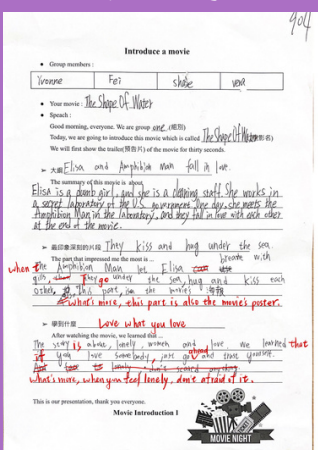 904
Introduce a movie
Group members :
Yvonne Fei shane vera
Your movie : The Shape Of Water
Speach :
Good morning, everyone. We are group one. (組別)
Today, we are going to introduce this movie which is called The Shape Of Water(影名)
We will first show the trailer(預告片) of the movie for thirty seconds.
大綱 Elisa and Amphibian Man fall in love.
The summary of this movie is about
Elisa is a dumb girl, and she is a cleaning staff. She works in
a secret laboratory of the U.S. government. One day, she meets the
Amphibian Man in the laboratory, and they fall in love with each other
at the end of the movie.
最印象深刻的片段 They kiss and hug under the sea.
The part that impressed me the most is ... breathe with
when the Amphibian Man let Elisa
gills, They go under the sea, hug and kiss each
other, this part, is on the movie's 海報
what's more, this part is also the movie's poster.
學到什麼 Love what you love
After watching the movie, we learned that ...
The story is about, lonely, women and love We learned that
if you love somebody, just go ahead and trust yourself.
what's more, when you feel lonely, don't afraid of it.
This is our presentation, thank you everyone.
Movie Introduction 1
MOVIE NIGHT